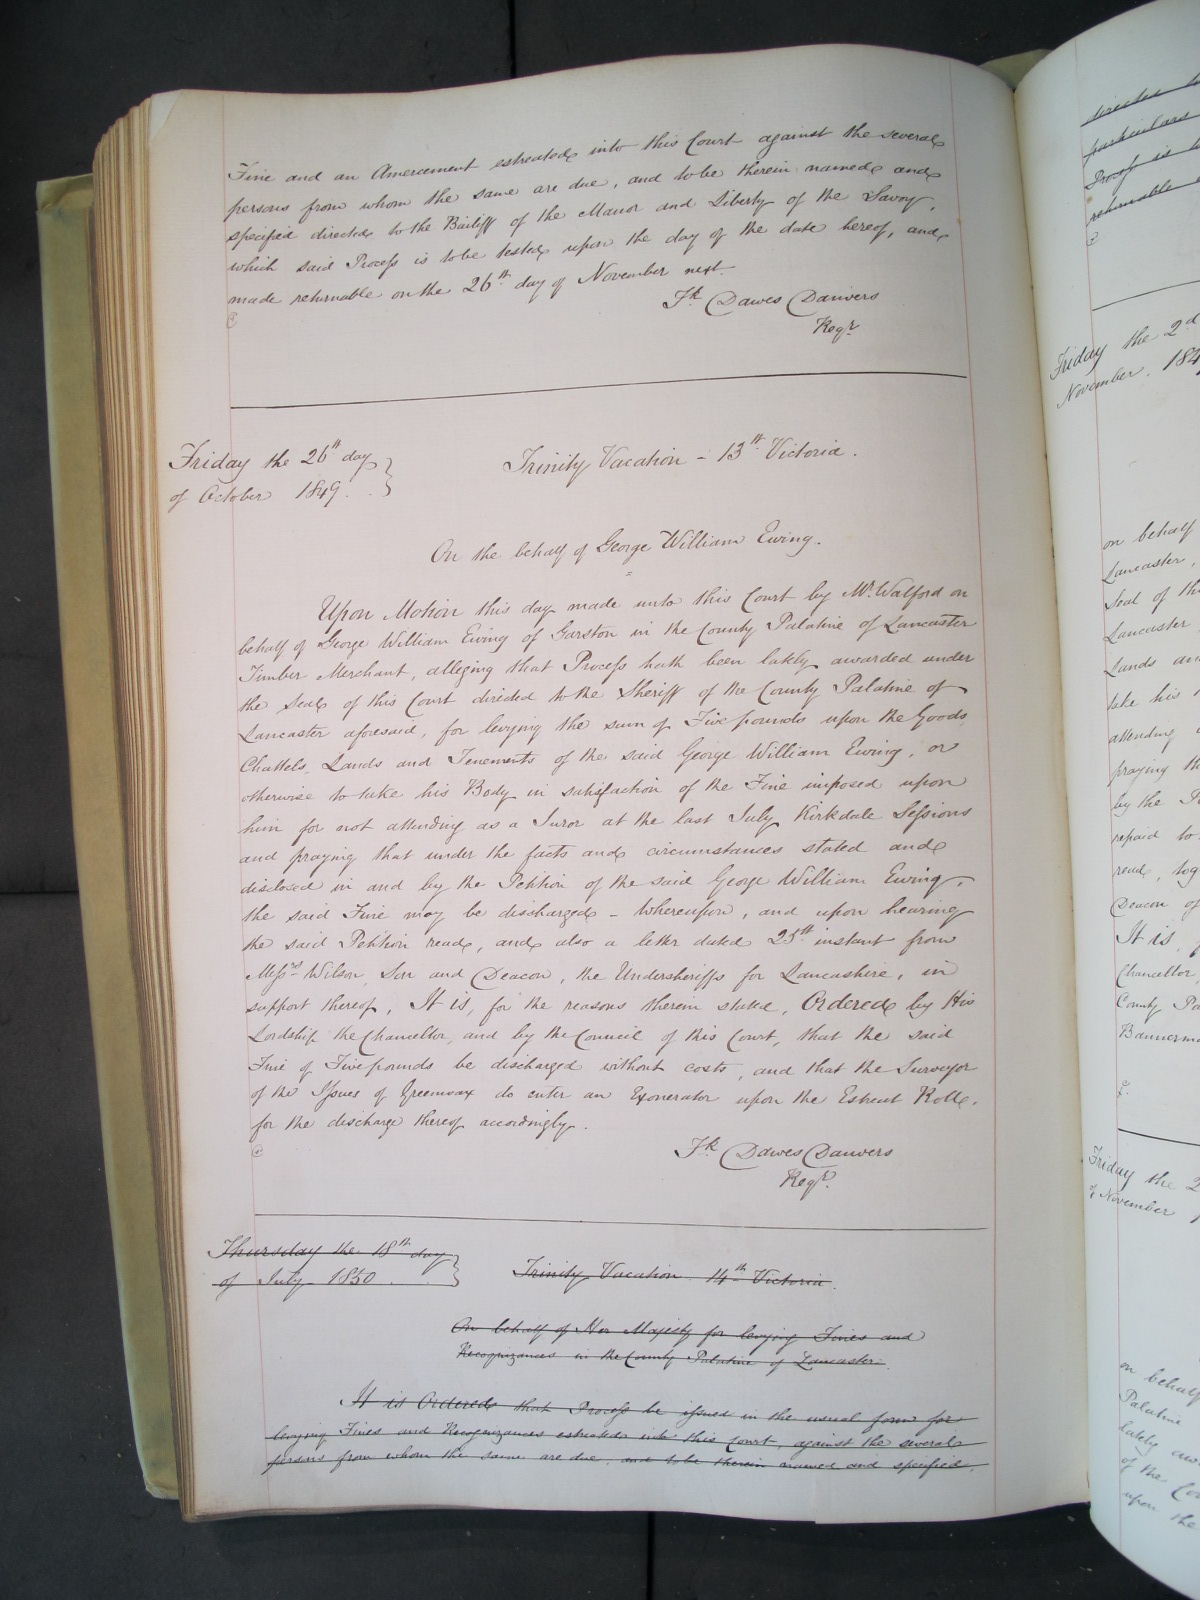 Fine and an Amercement estreated into this Court against the several
persons from whom the same are due, and to be therein named and
specified directed to the Bailiff of the Manor and Liberty of the Savoy,
which said Process is to be tested upon the day of the date hereof, and
made returnable on the 26th day of November next.
Fk Dawes Danvers
Regr
Friday the 26th day
of October 1849.
Trinity Vacation - 13th Victoria.
On the behalf of George William Ewing.
Upon Motion this day made unto this Court by Mr. Walford on
behalf of George William Ewing of Garston in the County Palatine of Lancaster
Timber Merchant, alleging that Process hath been lately awarded under
the Seal of this Court directed to the Sheriff of the County Palatine of
Lancaster aforesaid, for levying the sum of Five pounds upon the Goods
Chattels, Lands and Tenements of the said George William Ewing, or
otherwise to take his Body in satisfaction of the Fine imposed upon
him for not attending as a Juror at the last July Kirkdale Sessions
and praying that under the facts and circumstances stated and
disclosed in and by the Petition of the said George William Ewing,
the said Fine may be discharged - Whereupon, and upon hearing
the said Petition read, and also a letter dated 25th instant from
Messrs Wilson, Son and Deacon, the Undersheriffs for Lancashire, in
support thereof, It is, for the reasons therein stated, Ordered by His
Lordship the Chancellor, and by the Council of this Court, that the said
Fine of Five pounds be discharged without costs, and that the Surveyor
of the Issues of Greenwax do enter an Exonerator upon the Estreat Roll,
for the discharge thereof accordingly.
Fk Dawes Danvers
Regr.
Thursday the 18th day
of July 1850.
Trinity Vacation 14th Victoria.
On behalf of Her Majesty for levying Fines and
Recognizances in the County Palatine of Lancaster.
It is Ordered that Process be issued in the usual form for
levying Fines and Recognizances estreated into this Court, against the several
persons from whom the same are due, and to be therein named and specified,
directed
particulars
returnable
Friday the 2nd
November, 184
on behalf
Lancaster,
Seal of th
Lancaster
Lands an
take his
attending
praying th
by the
repaid to
read, tog
Deacon of
It is,
Chancellor,
County Pa
Bannerma
Friday the 2
of November
on behalf
Palatine
lately aw
of the Co
upon the